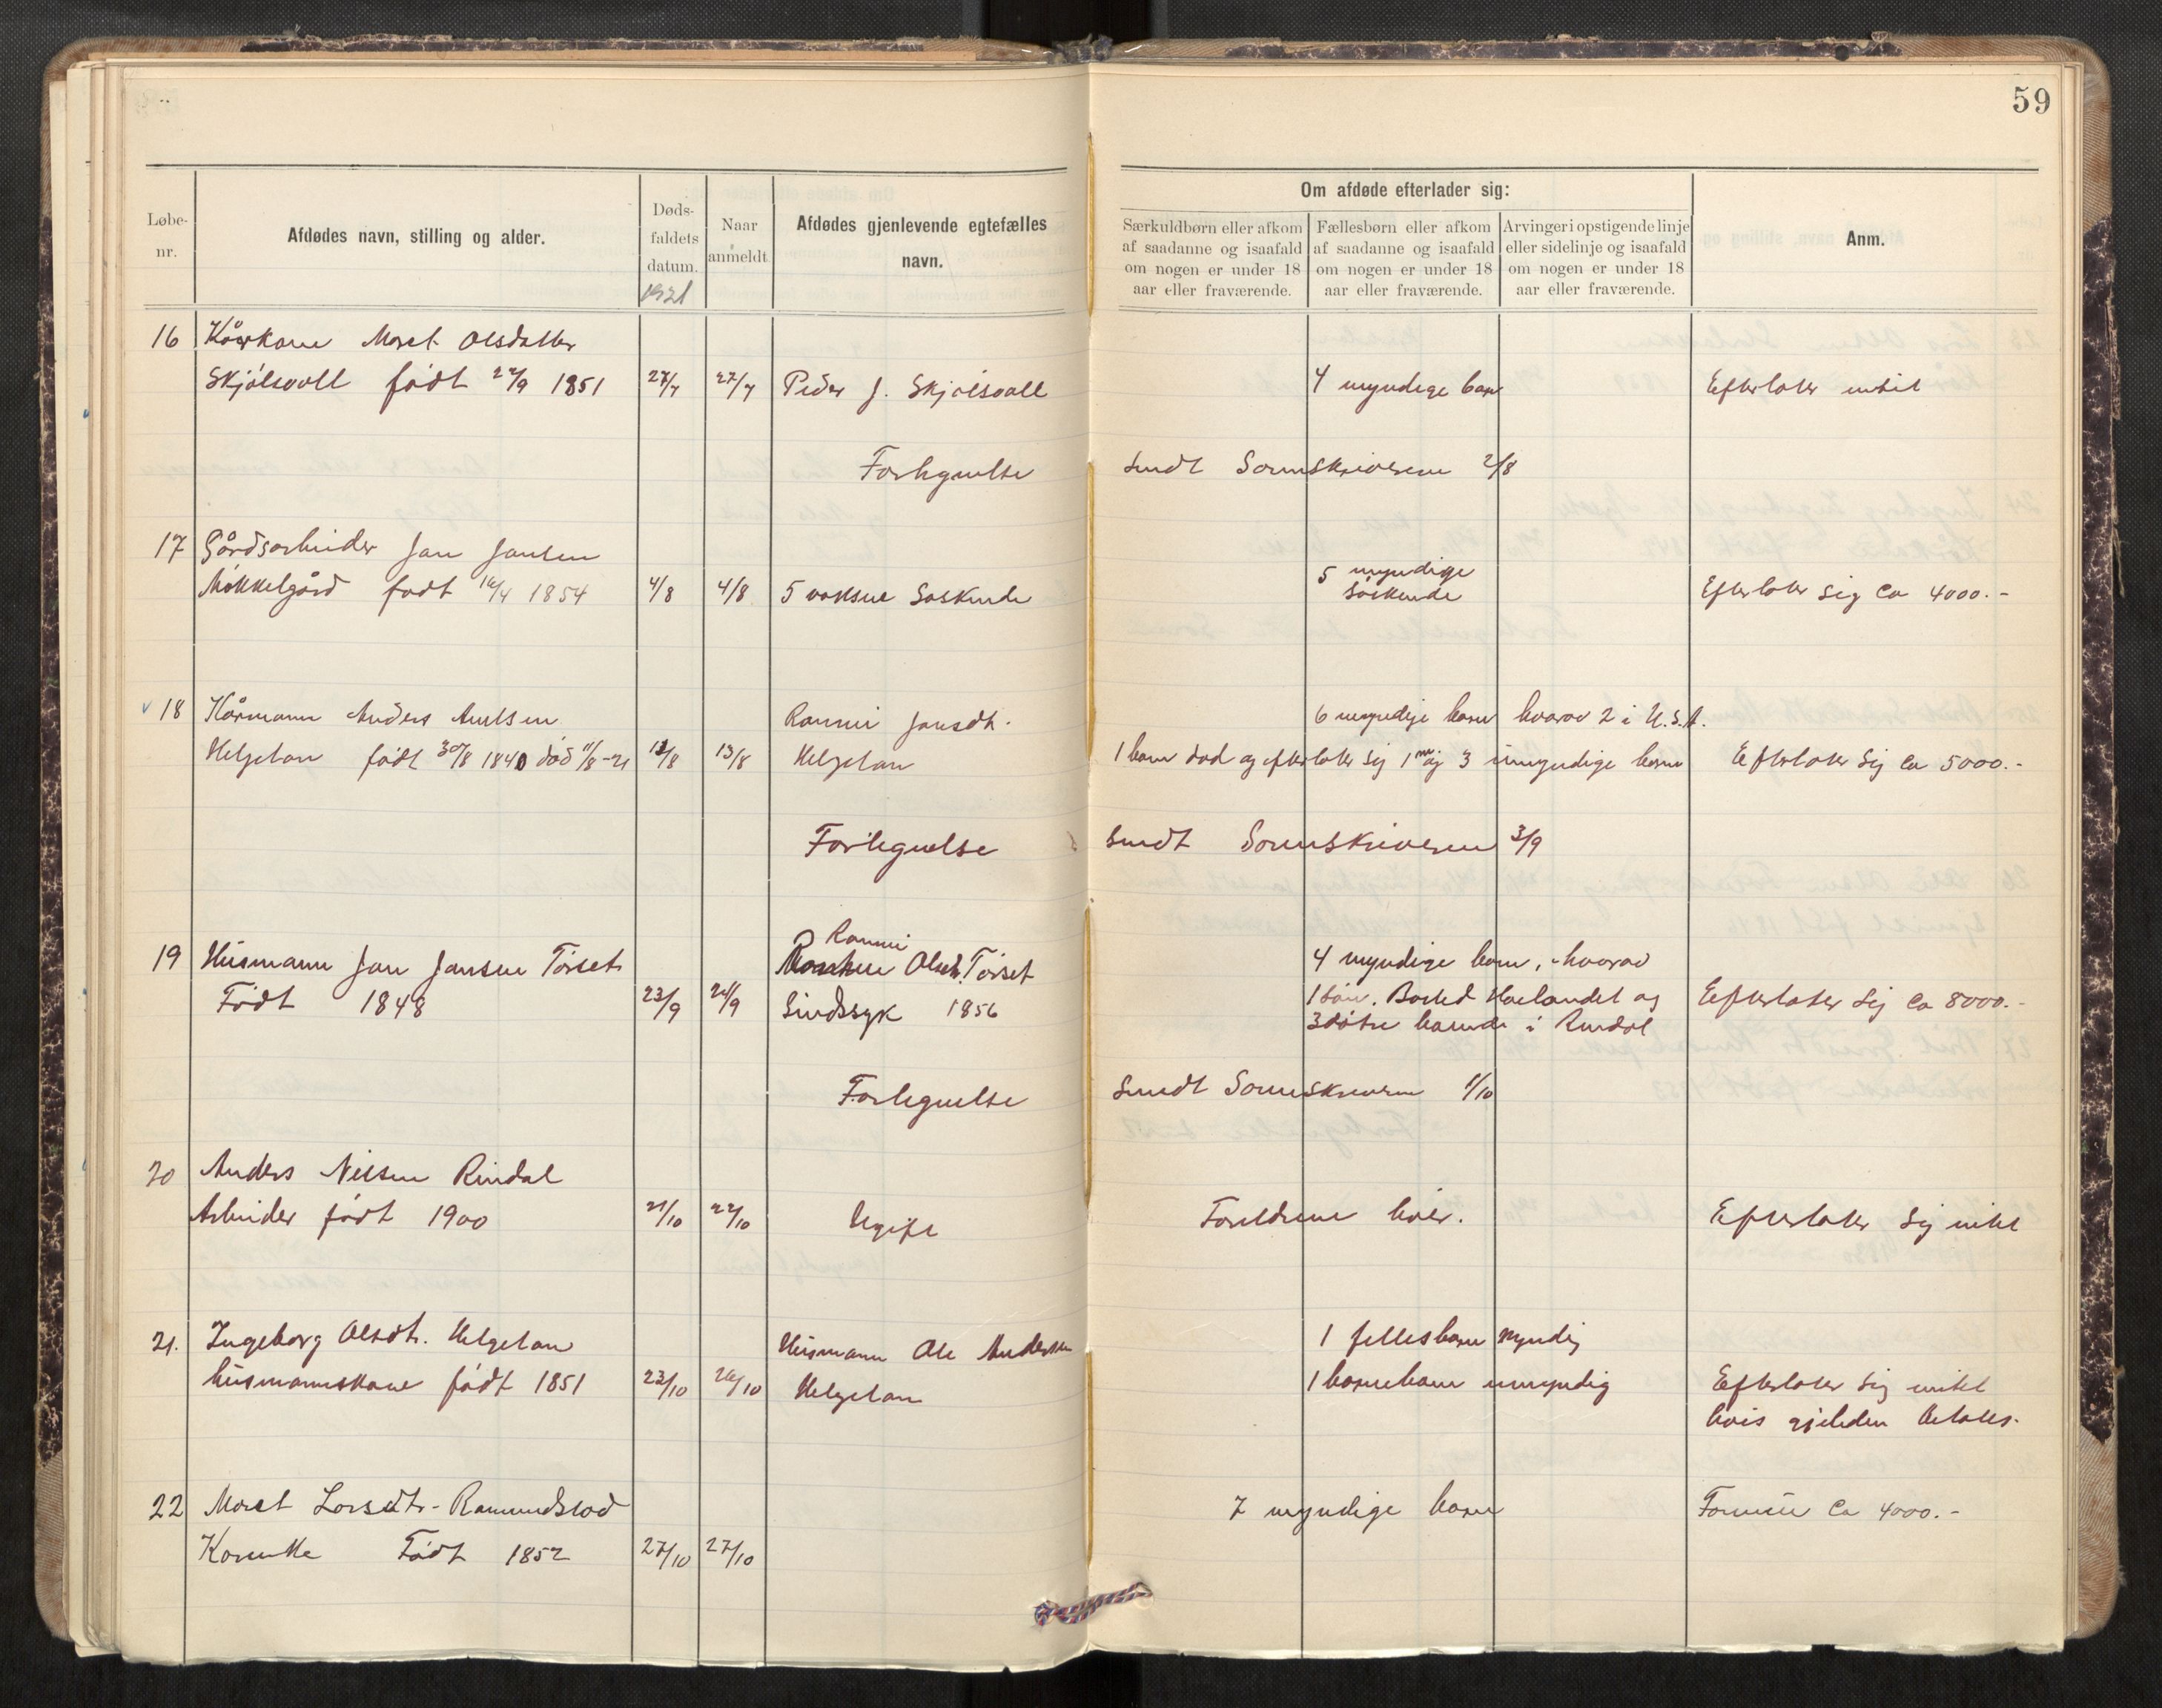 59
Løbe-
nr.
Afdødes navn, stilling og alder.
Døds-
faldets
datum.
1921
Naar
anmeldt
Afdødes gjenlevende egtefælles
navn.
Om afdøde efterlader sig:
Særkuldbørn eller afkom
af saadanne og isaafald
om nogen er under 18
aar eller fraværende.
Fællesbørn eller afkom
af saadanne og isaafald
om nogen er under 18
aar eller fraværende.
Arvinger i opstigende linje
eller sidelinje og isaafald
om nogen er under 18
aar eller fraværende.
Anm.
16 Kårkone Marit Olsdatter
Skjølsvoll født 22/9 1851 27/7 27/7 Peder J. Skjølsvoll 4 myndige barn Efterlater intet
Forlegnelse Sendt Sorenskriveren 2/8
17 Gårdsarbeider Jon Jonsen
Møkkelgård født 16/4 1854 4/8 4/8 5 voksne Søskende 5 myndige
Søskende Efterlater Sig Ca 4000.-
18 Kårmann Anders Antsen Ronnei Jonsdt. 6 myndige barn hvorav 2 i U.S.A.
Helgetun født 30/8 1840 død 11/8-21 13/8 13/8 Helgetun 1 barn død og efterlater sig 1 myn 3 umyndige barn Efterlater Sig Ca 5000.-
Forlegnelse Sendt Sorenskriveren 3/9
19 Husmann Jon Jonsen Tørset Ronnei
Olsdt. Tørset 4 myndige barn, hvorav
Født 1848 23/9 24/9 Sindssyk 1856 1 Søn. Bosted Høilandet og Efterlater Sig Ca 8000.-
3 døtre boende i Rindal
Forlegnelse Sendt Sorenskriveren 1/10
20 Anders Nilsen Rindal
Arbeider født 1900 21/10 22/10 Ugift Foreldrene lever. Efterlater Sig intet
21. Ingeborg Olsdt. Helgetun Husmann Ole Andersen 1 fellesbarn myndig
husmannskone født 1851 23/10 26/10 Helgetun 1 barnebarn umyndig Efterlater Sig intet
hvis gjelden betales.
22 Marit Larsdtr. Romundstad 7 myndige barn Formue Ca 4000.-
Kårenke Født 1852 27/10 27/10